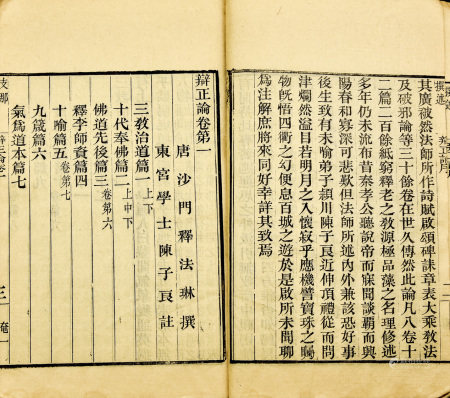 其廣被然法師所作詩賦啟頌碑誄章表大乘教法
及破邪論等三十餘卷在世久傳然此論凡八卷十
二篇二百餘紙窮釋老之教源極品藻之名理修述
多年仍未流布昔秦孝公聽說帝而寐聞談覇而興
陽春和寡深可悲歎但法師所述內外兼該恐好事
後生致有未喻弟子潁川陳子良近伸頂禮從而問
津爛然溢目若明月之入懷寂乎應機譬寶珠之矚
物旣悟四衢之幻便息百城之遊於是啟所未聞聊
爲注解庶將來同好幸詳其致焉
辯正論卷第一
唐沙門釋法琳撰
東宮學士陳子良註
三教治道篇一上下
十代奉佛篇二上中下
佛道先後篇三卷第六
釋李師資篇四
十喻篇五卷第七
九箴篇六
氣爲道本篇七
三